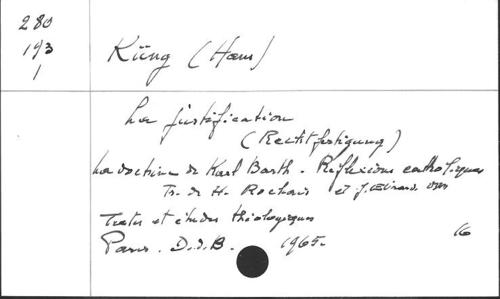 280
193
1
Küng (Hans)
La justification
(Rechtfertigung)
La doctrine de Karl Barth. Réflexions catholiques
Tr. de H. Rochais et J. Evrard
Textes et études théologiques
Paris. D.D.B. 1965.
16